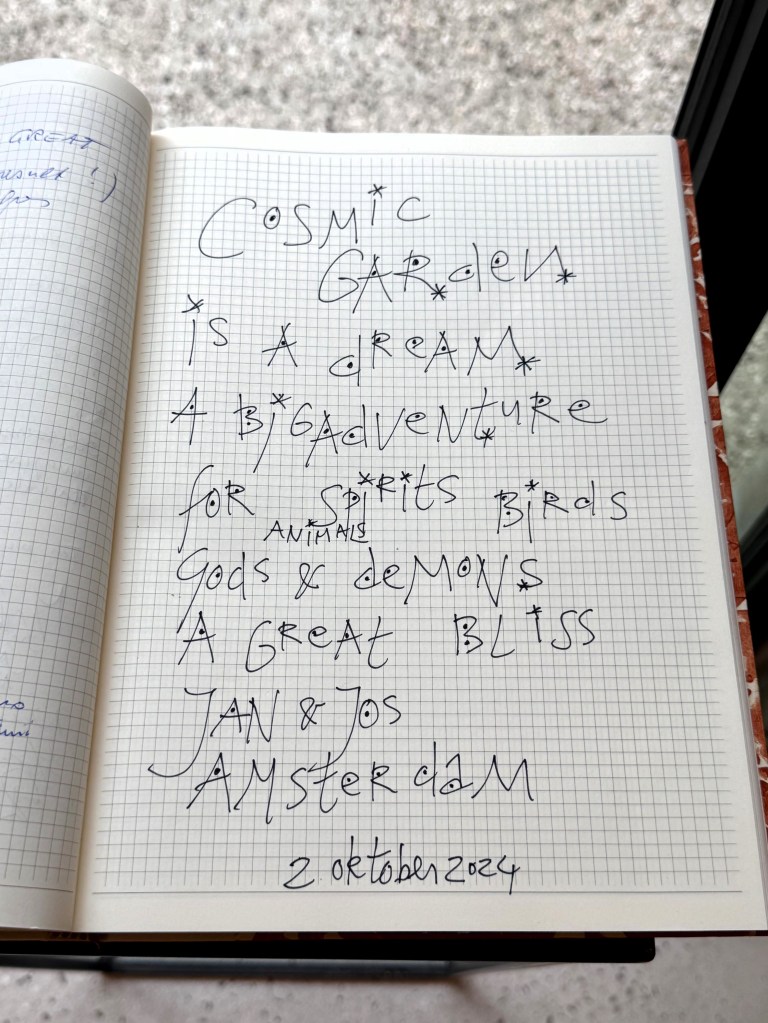 GREAT
COSMiC
GARden
is A dREAM
A BiG AdVENtURE
foR SPiRits BiRds
ANiMALS
Gods & deMONS
A GREAt BLiSS
JAN & JOS
AMSteRdaM
2 oktober 2024